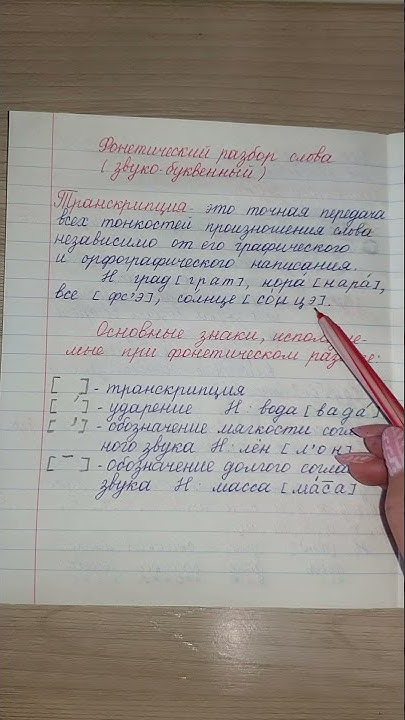 Фонетический разбор слова
(звуко-буквенный)
Транскрипция - это точная передача
всех тонкостей произношения слова
независимо от его графического
и орфографического написания.
Н град [грат], нора [нара́],
все [фс'э], солнце [со́нцэ].
Основные знаки, используе-
мые при фонетическом разборе:
[ ] - транскрипция
[ ́ ] - ударение Н: вода [вада́]
[ ' ] - обозначение мягкости согл
ного звука Н: лён [л'он]
[ ¯ ] - обозначение долгого согла
звука Н: масса [ма́с̄а]